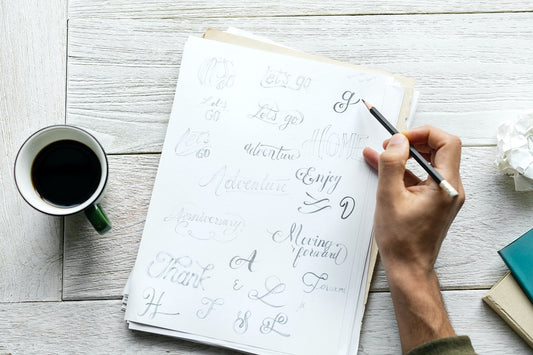 Let's go
g
Let's
GO
Let's go
Let's
GO
adventure
HOME
Enjoy
Adventure
Anniversary
Moving
forward
Thank
A
&
L
H
F
S
L